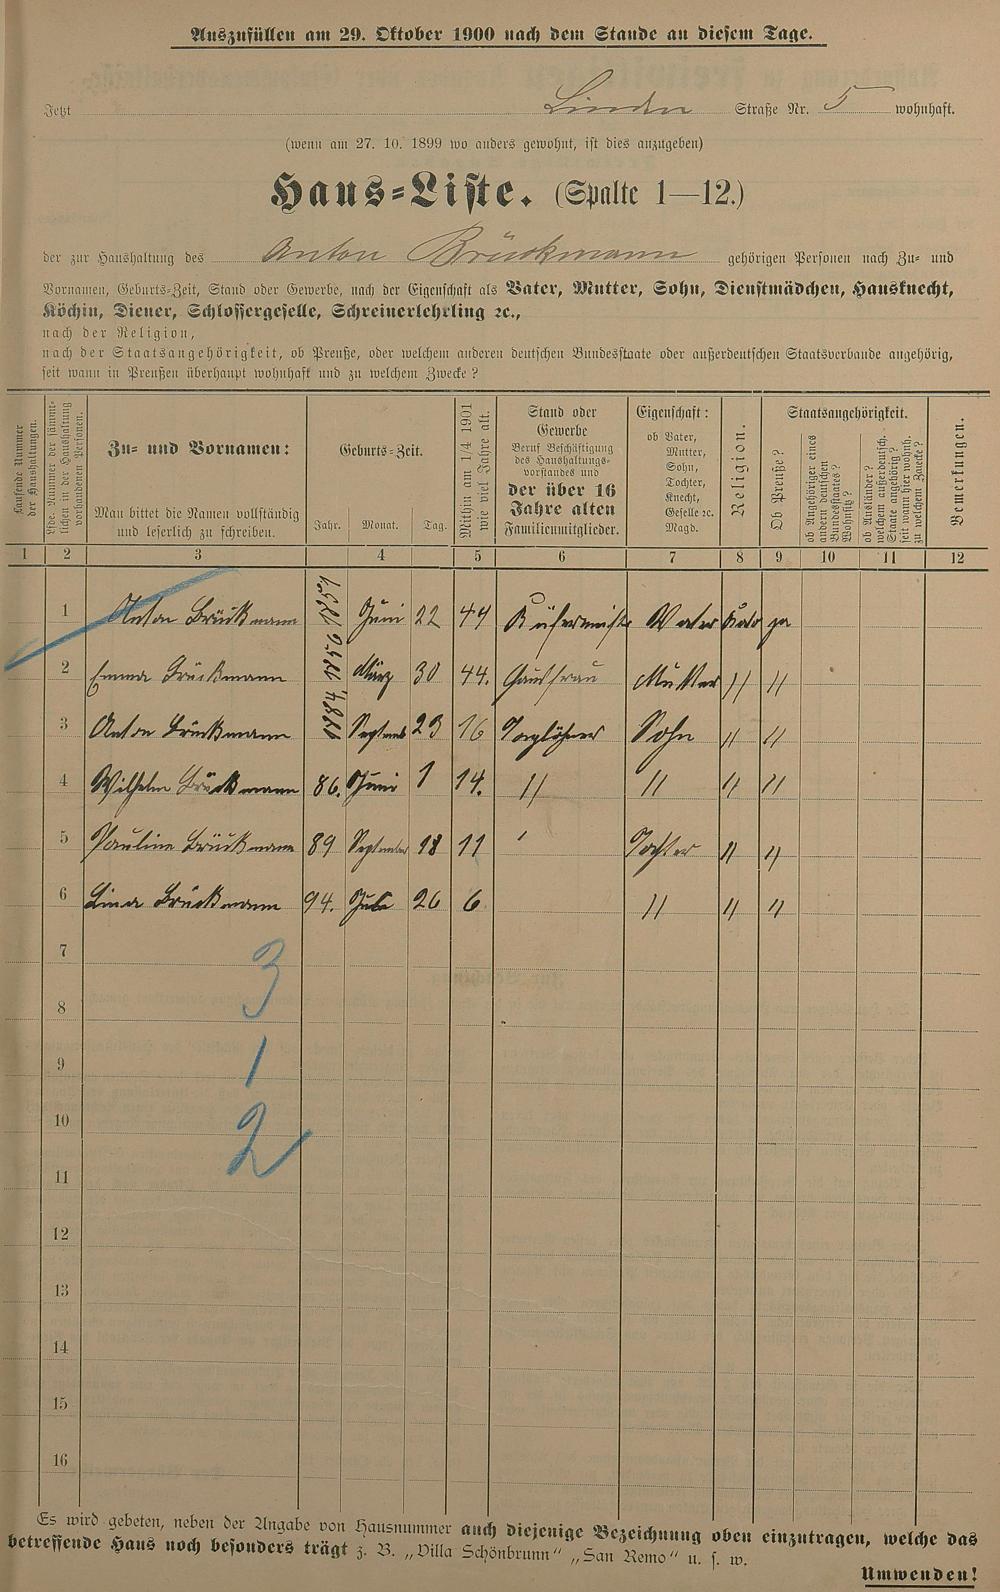 Auszufüllen am 29. Oktober 1900 nach dem Stande an diesem Tage.
Jetzt Linden Straße Nr. 5 wohnhaft.
(wenn am 27. 10. 1899 wo anders gewohnt, ist dies anzugeben)
Haus-Liste. (Spalte 1—12.)
der zur Haushaltung des Anton Brückmann gehörigen Personen nach Zu- und
Vornamen, Geburts-Zeit, Stand oder Gewerbe, nach der Eigenschaft als Vater, Mutter, Sohn, Dienstmädchen, Hausknecht,
Köchin, Diener, Schlossergeselle, Schreinerlehrling ꝛc.,
nach der Religion,
nach der Staatsangehörigkeit, ob Preuße, oder welchem anderen deutschen Bundesstaate oder außerdeutschen Staatsverbande angehörig,
seit wann in Preußen überhaupt wohnhaft und zu welchem Zwecke?
Laufende Nummer
der Haushaltungen.
Lfde. Nummer der sämmt-
lichen in der Haushaltung
vorhandenen Personen.
Zu- und Vornamen:
Man bittet die Namen vollständig
und leserlich zu schreiben.
Geburts-Zeit.
Jahr. Monat. Tag.
Mithin am 1/4 1901
wie viel Jahre alt.
Stand oder
Gewerbe
Beruf Beschäftigung
des Haushaltungs-
vorstandes und
der über 16
Jahre alten
Familienmitglieder.
Eigenschaft:
ob Vater,
Mutter,
Sohn,
Tochter,
Knecht,
Geselle ꝛc.
Magd.
Religion.
Staatsangehörigkeit.
Ob Preuße?
ob Angehöriger eines
andern deutschen
Bundesstaates?
Wohnsitz?
ob Ausländer?
welchem außerdeutsch.
Staate angehörig?
seit wann hier wohnh.
zu welchem Zwecke?
Bemerkungen.
1 2 3 4 5 6 7 8 9 10 11 12
1 Anton Brückmann Juni 22 44 Vater ja
2 Emma Brückmann 1856 März 30 44. Hausfrau Mutter " "
3 Anton Brückmann 1884 Septemb 23 16 Taglöhner Sohn " "
4 Wilhelm Brückmann 86. Juni 1 14. " " " "
5 Pauline Brückmann 89 September 18 11 ' Tochter " "
6 Lina Brückmann 94. Juli 26 6 " " "
7
3
8
9
1
10
2
11
12
13
14
15
16
Es wird gebeten, neben der Angabe von Hausnummer auch diejenige Bezeichnung oben einzutragen, welche das
betreffende Haus noch besonders trägt z. B. „Villa Schönbrunn" „San Remo" u. s. w.
Umwenden!